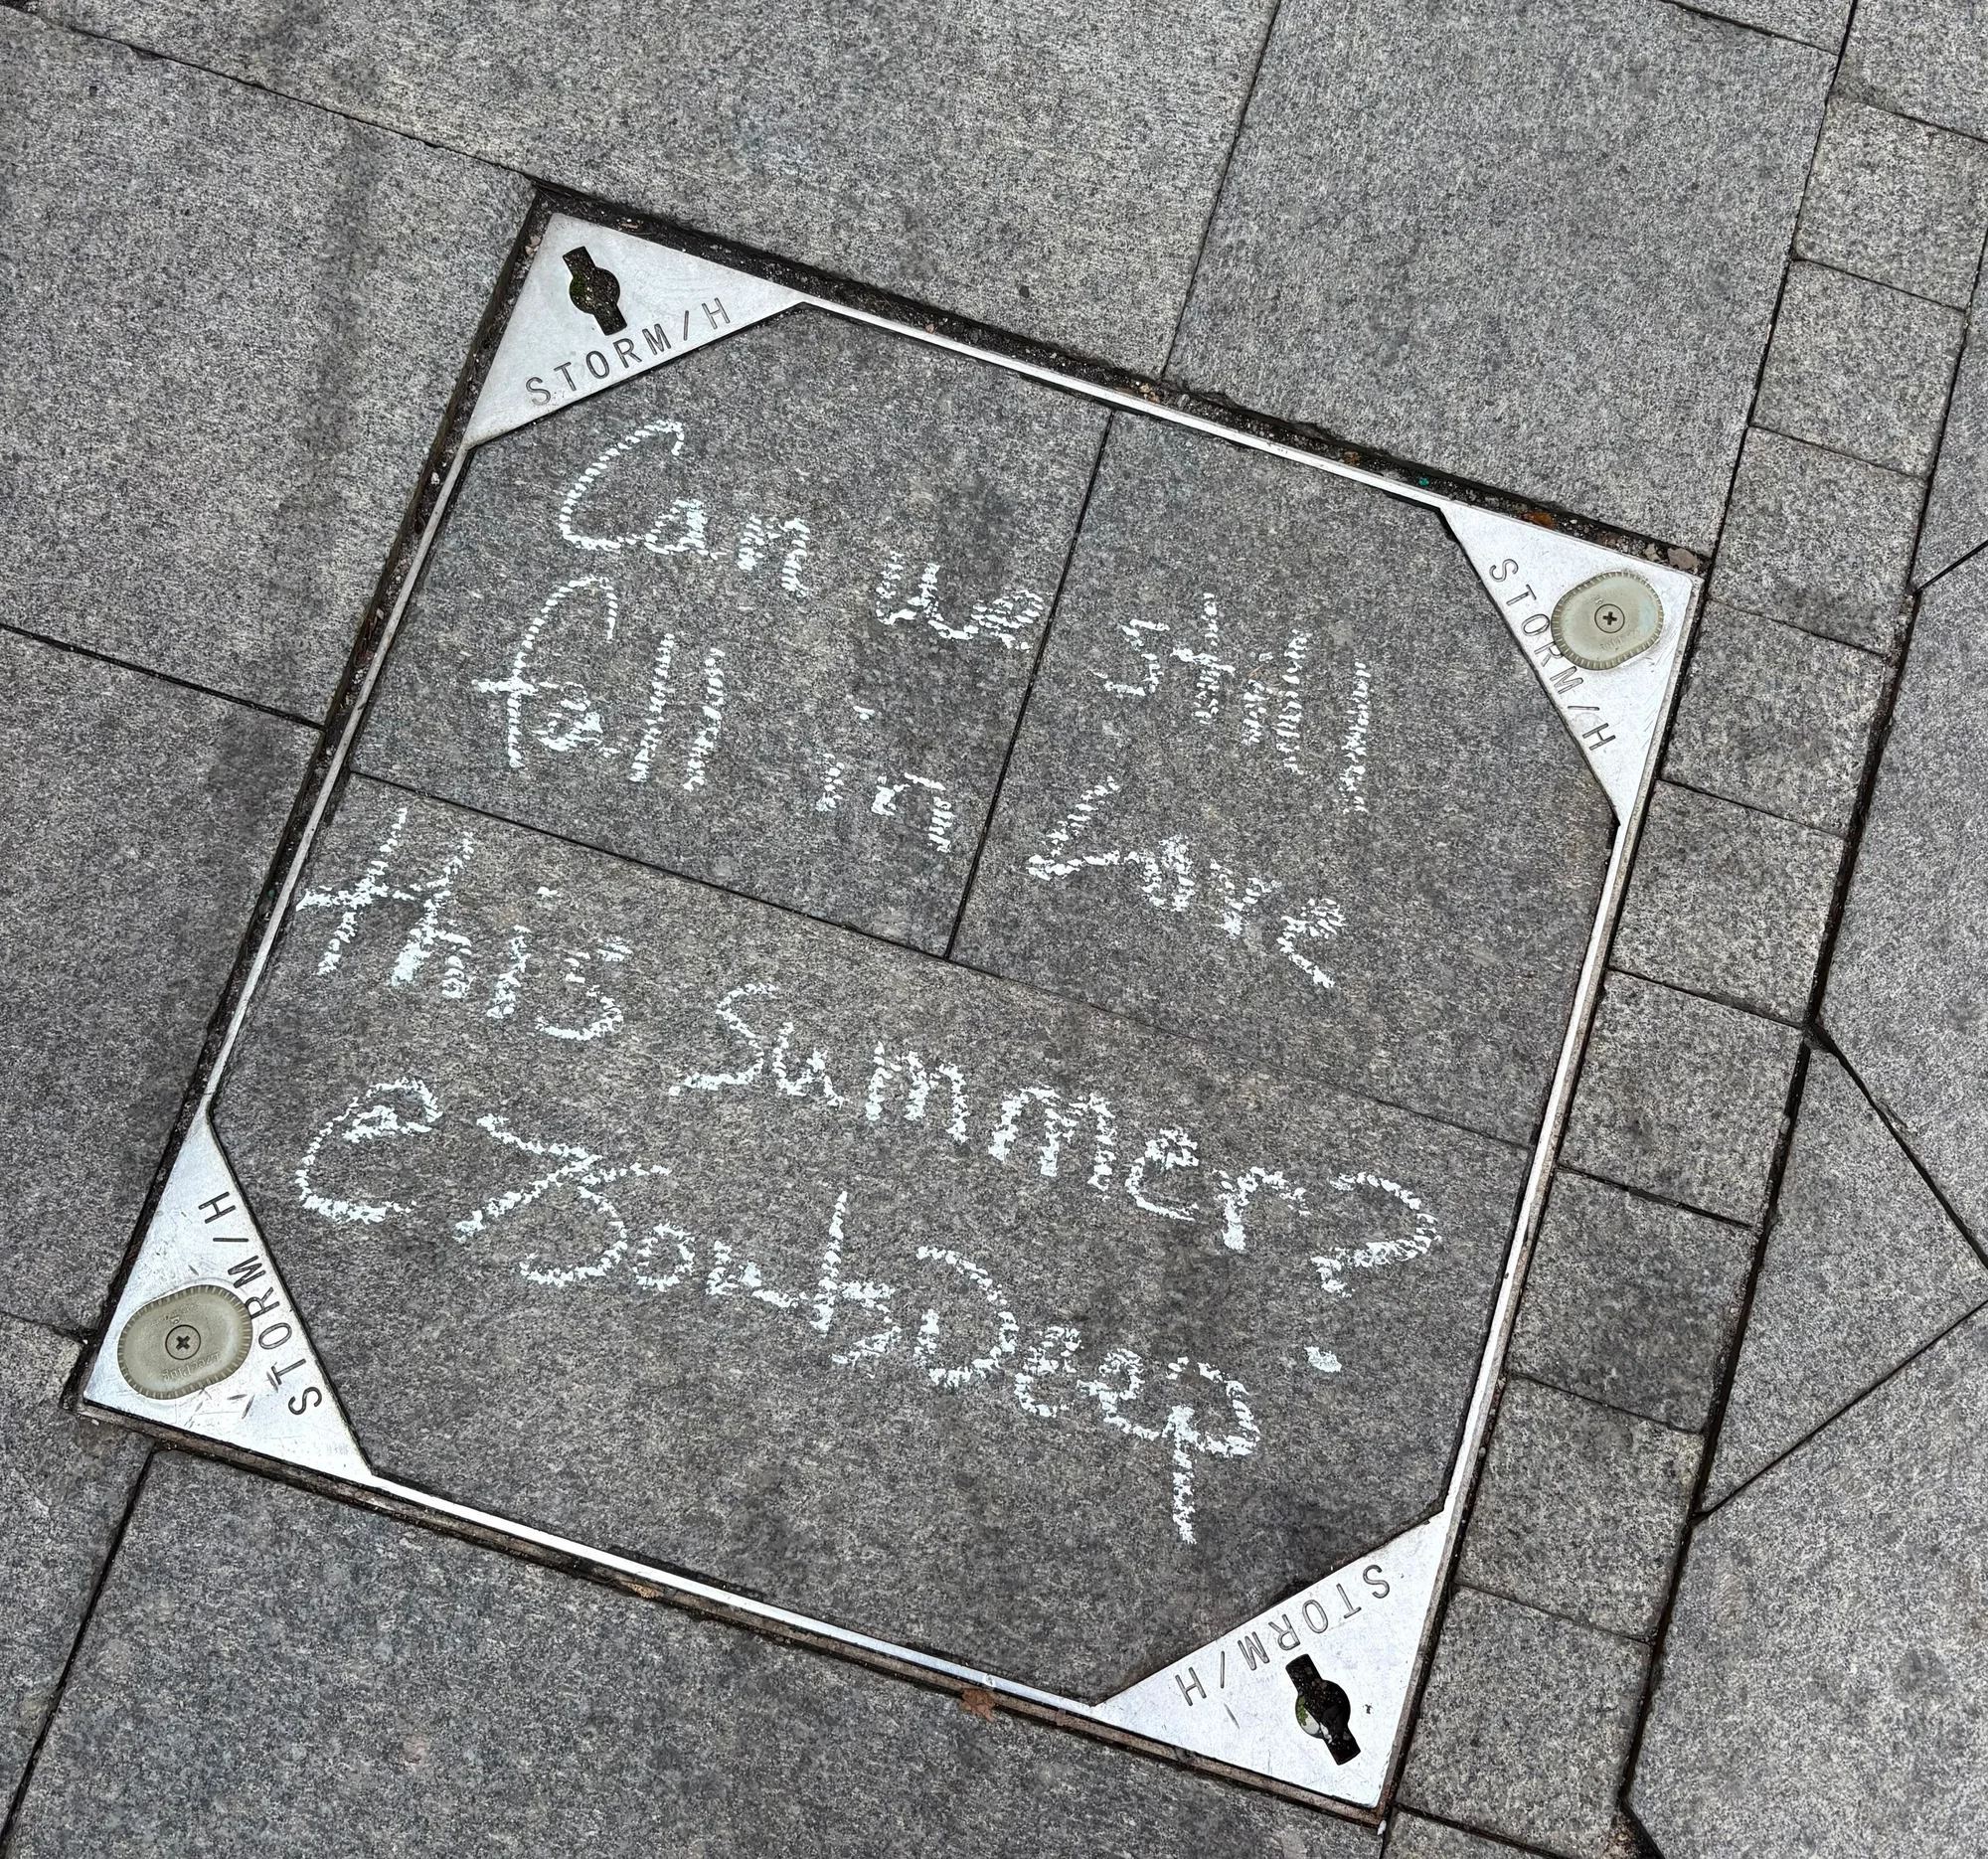 STORM/H
STORM/H
Can we still
fall in Love
this Summer?
@7SoulsDeep
STORM/H
STORM/H